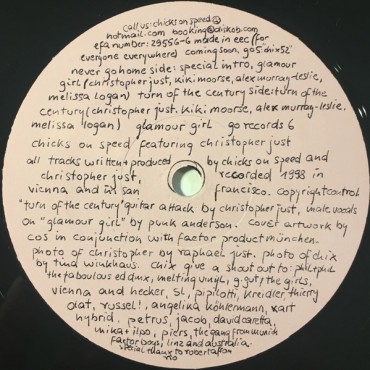 call us: chicks on speed @
hotmail.com booking@diskob.com
efa number: 29556-6 made in eec (for
everyone everywhere) coming soon, go5: chix52"
never go home side: special intro, glamour
girl (christopher just, kiki moorse, alex murray-leslie,
melissa logan) turn of the century side: turn of the
century (christopher just. kiki moorse, alex murray-leslie,
melissa logan) glamour girl go records 6
chicks on speed featuring christopher just
all tracks written + produced by chicks on speed and
christopher just, recorded 1998 in
vienna and san francisco. copyright control
"turn of the century" guitar attack by christopher just, male vocals
on "glamour girl" by punk anderson. cover artwork by
cos in conjunction with factor product münchen.
photo of christopher by raphael just. photo of chix
by tina winkhaus. chix give a shout out to: phil+phil
the fabulous ed dnx, melting vinyl, g.gut, the girls,
vienna and hecker, SL, pipilotti, kreidler, thierry
olat, russel!, angelika köhlermann, kurt
hybrid. petrus, jacob, david caretta,
mika + ilpo, piers, the gang from munich
factor boys, linz and australia.
special thanx to robert affon
rio